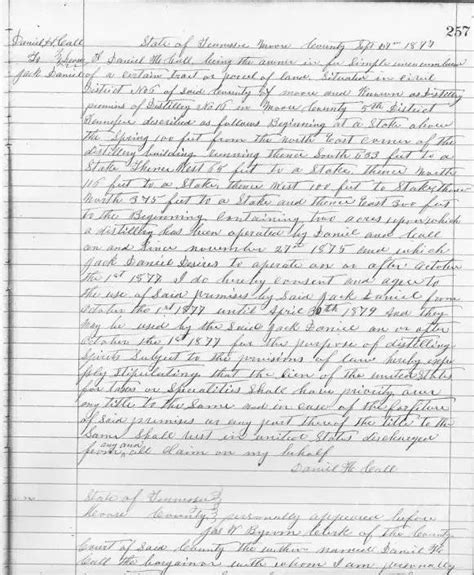 257
Daniel H. Call
To } Lease
Jack Daniel
State of Tennessee Moore County Sept 1877
I Daniel H Call being the owner in fee Simple unencumbered
of a certain tract or parcel of land Situated in Civil
District No 5 of Said County of Moore and Known as Distillery
premises of Distillery No 16 in Moore County 5th District
Tennessee described as follows Beginning at a Stake above
the Spring 100 feet from the North East Corner of the
distillery building running thence South 633 feet to a
Stake Thence West 65 feet to a Stake, thence North
115 feet to a Stake, thence West 100 feet to Stake thence
North 375 feet to a Stake and thence East 300 feet
to the Beginning Containing two acres upon which
a distillery has been operated by Daniel and Call
on and Since November 27th 1875 and which
Jack Daniel Desires to operate on or after October
the 1st 1877 I do hereby consent and agree to
the use of Said premises by Said Jack Daniel from
October the 1st 1877 until April 30th 1879 and they
may be used by the Said Jack Daniel on or after
October the 1st 1877 for the purpose of distilling
Spirits Subject to the provisions of law hereby expres
ly Stipulating that the lien of the United States
for taxes or Specialities Shall have priority over
my title to the Same and in case of the forfeiture
of Said premises or any part thereof the title to the
Same Shall vest in United States discharged
from any and all claim on my behalf
Daniel H. Call
State of Tennessee }
Moore County } personally appeared before
Jas W Byrom Clerk of the County
Court of Said County the within named Daniel H
Call the bargainor with whom I am personally